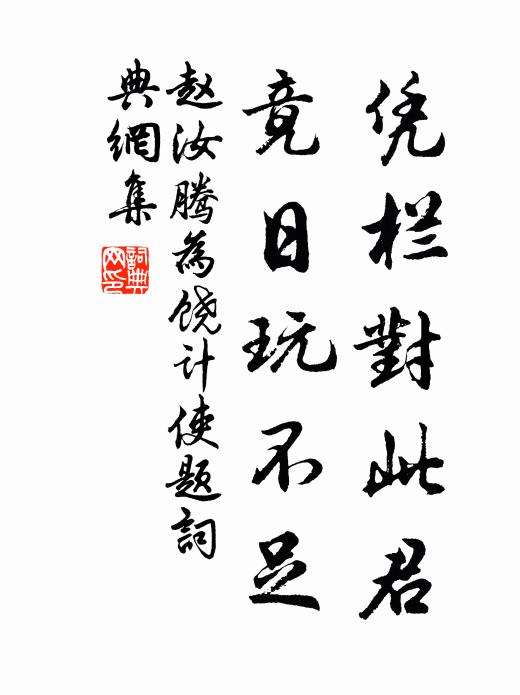 凭栏對此君
竟日玩不足
赵汝腾為饶计使题詞
典網集
詞典
网印